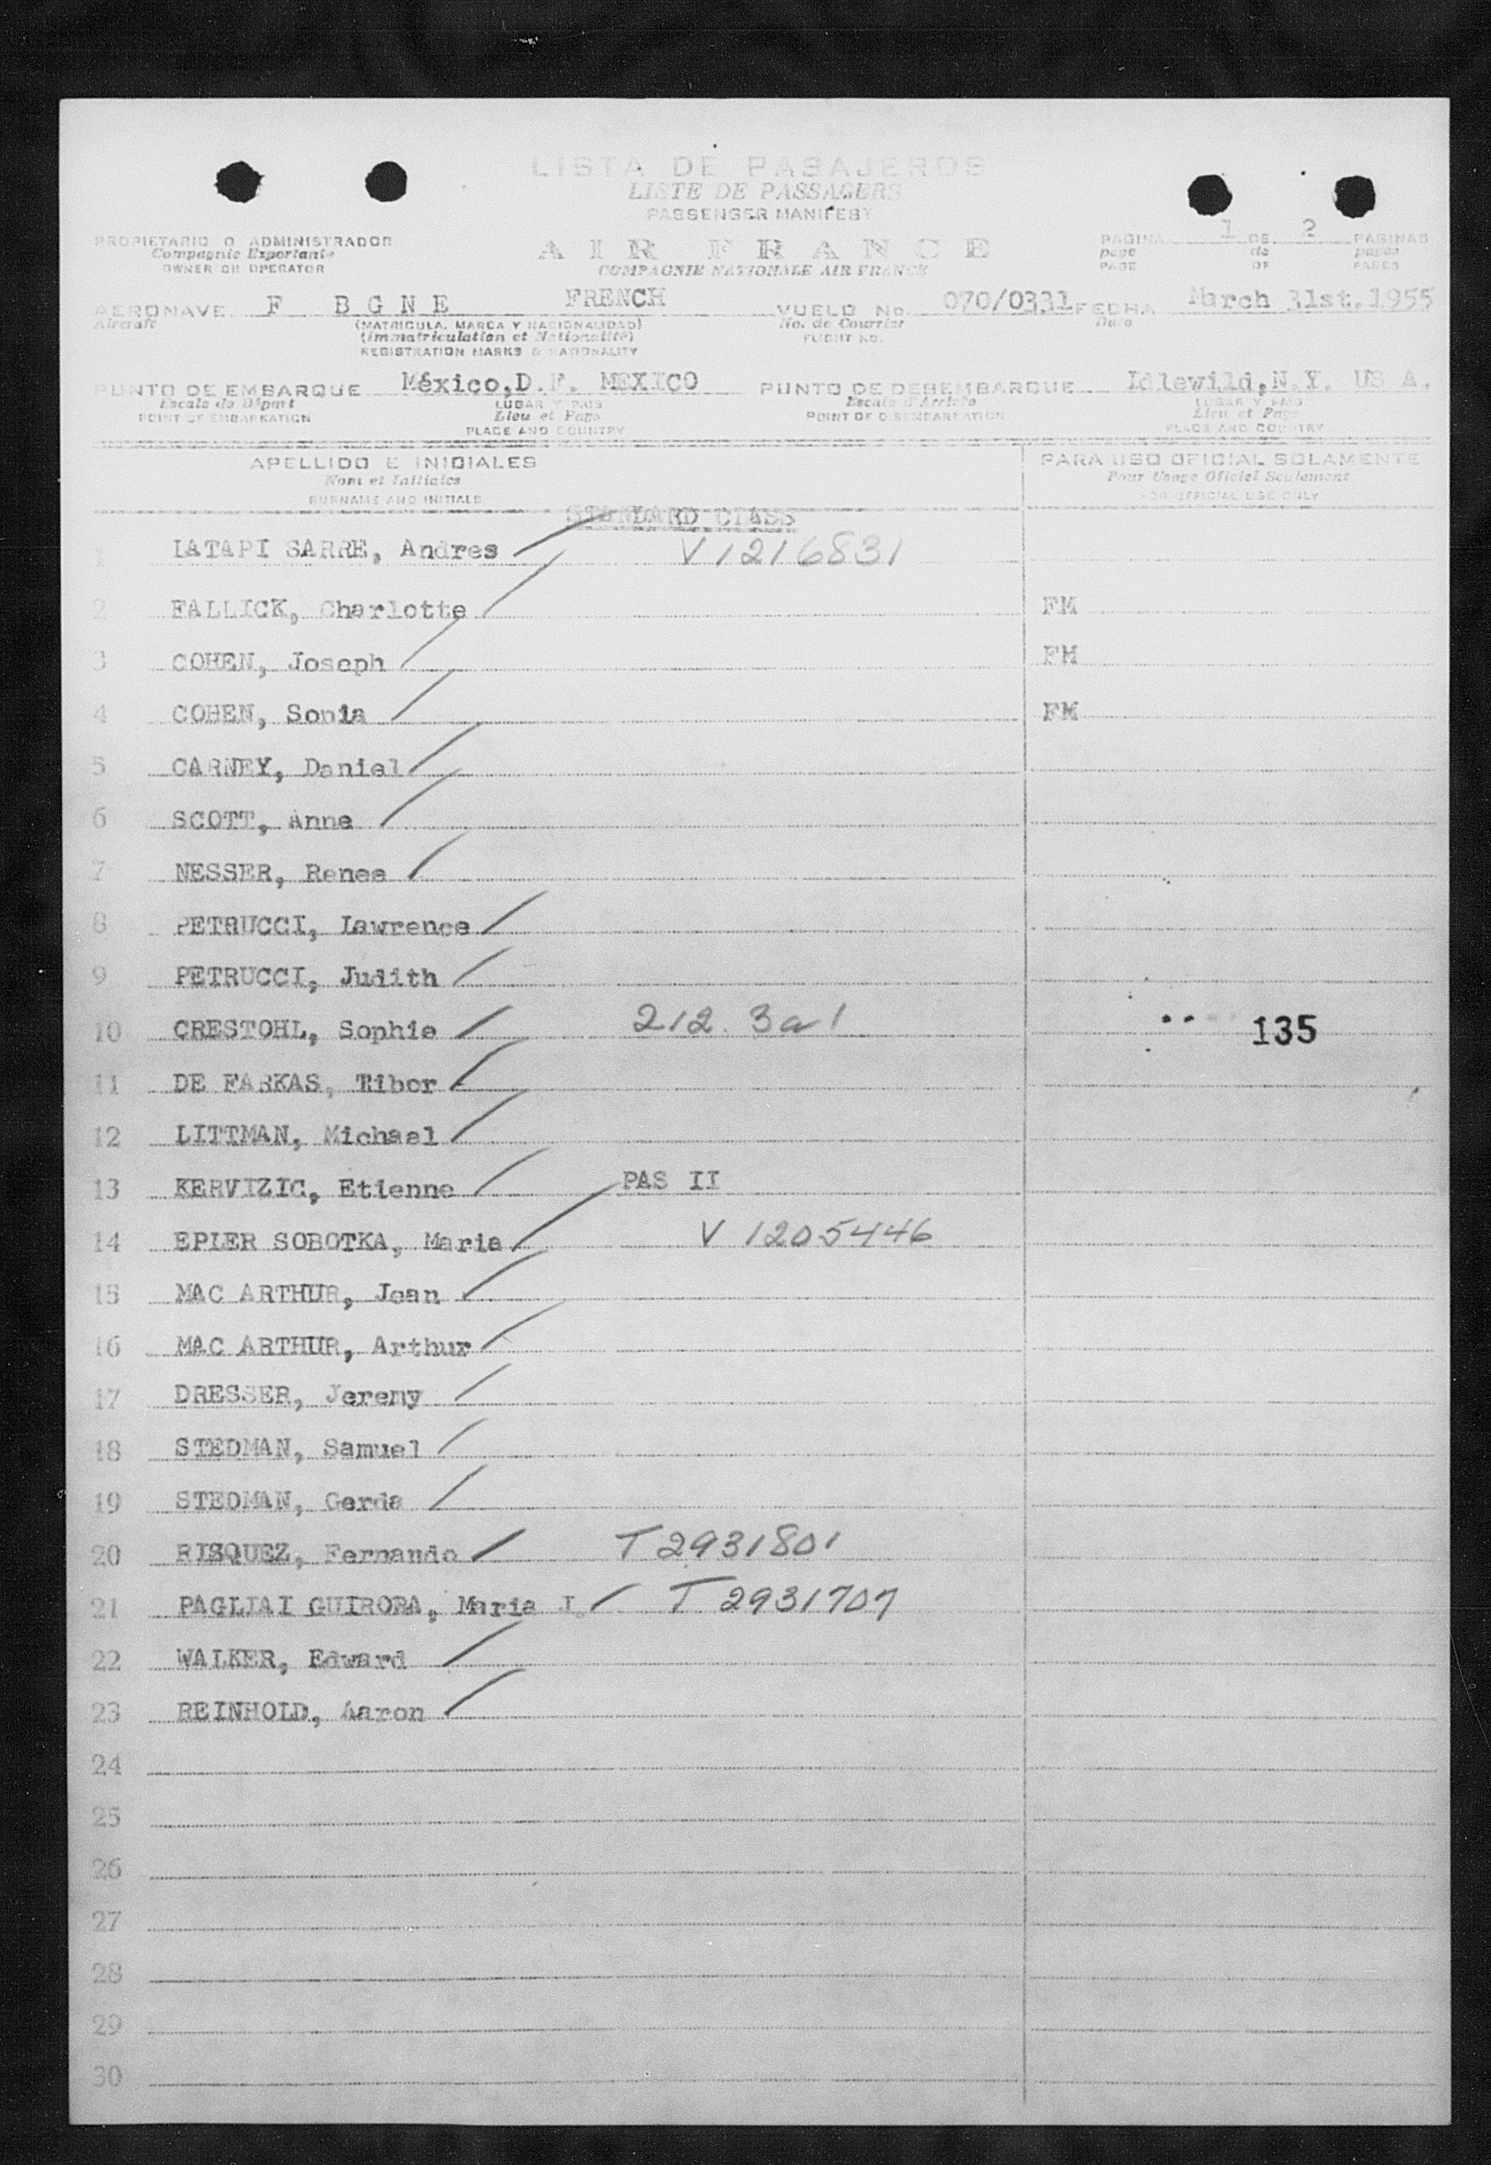 LISTA DE PASAJEROS
LISTE DE PASSAGERS
PASSENGER MANIFEST
PROPIETARIO O ADMINISTRADOR
Compagnie Exportante
OWNER OR OPERATOR
AIR FRANCE
COMPAGNIE NATIONALE AIR FRANCE
PAGINA 1 DE 2 PAGINAS
page de pages
PAGE OF PAGES
AERONAVE F BGNE FRENCH VUELO No. 070/0331 FECHA March 31st.1955
Aircraft (MATRICULA, MARCA Y NACIONALIDAD) No. de Courrier Date
(Immatriculation et Nationalité) FLIGHT NO.
REGISTRATION MARKS & NATIONALITY
PUNTO DE EMBARQUE México,D.F. MEXICO PUNTO DE DESEMBARQUE Idlewild,N.Y. US A.
Escale de Départ LUGAR Y PAIS Escale d'Arrivée LUGAR Y PAIS
POINT OF EMBARKATION Lieu et Pays POINT OF DISEMBARKATION Lieu et Pays
PLACE AND COUNTRY PLACE AND COUNTRY
APELLIDO E INICIALES PARA USO OFICIAL SOLAMENTE
Nom et Initiales Pour Usage Officiel Seulement
SURNAME AND INITIALS FOR OFFICIAL USE ONLY
STANDARD CLASS
1 LATAPI SARRE, Andres V1216831
2 FALLICK, Charlotte FM
3 COHEN, Joseph FM
4 COHEN, Sonia FM
5 CARNEY, Daniel
6 SCOTT, Anne
7 NESSER, Renee
8 PETRUCCI, Lawrence
9 PETRUCCI, Judith
10 CRESTOHL, Sophie 212. 3a1 135
11 DE FARKAS, Tibor
12 LITTMAN, Michael
13 KERVIZIC, Etienne PAS II
14 EPLER SOBOTKA, Maria V 1205446
15 MAC ARTHUR, Jean
16 MAC ARTHUR, Arthur
17 DRESSER, Jeremy
18 STEDMAN, Samuel
19 STEDMAN, Gerda
20 RISQUEZ, Fernando T2931801
21 PAGLIAI GUIRORA, Maria I. T 2931707
22 WALKER, Edward
23 REINHOLD, Aaron
24
25
26
27
28
29
30